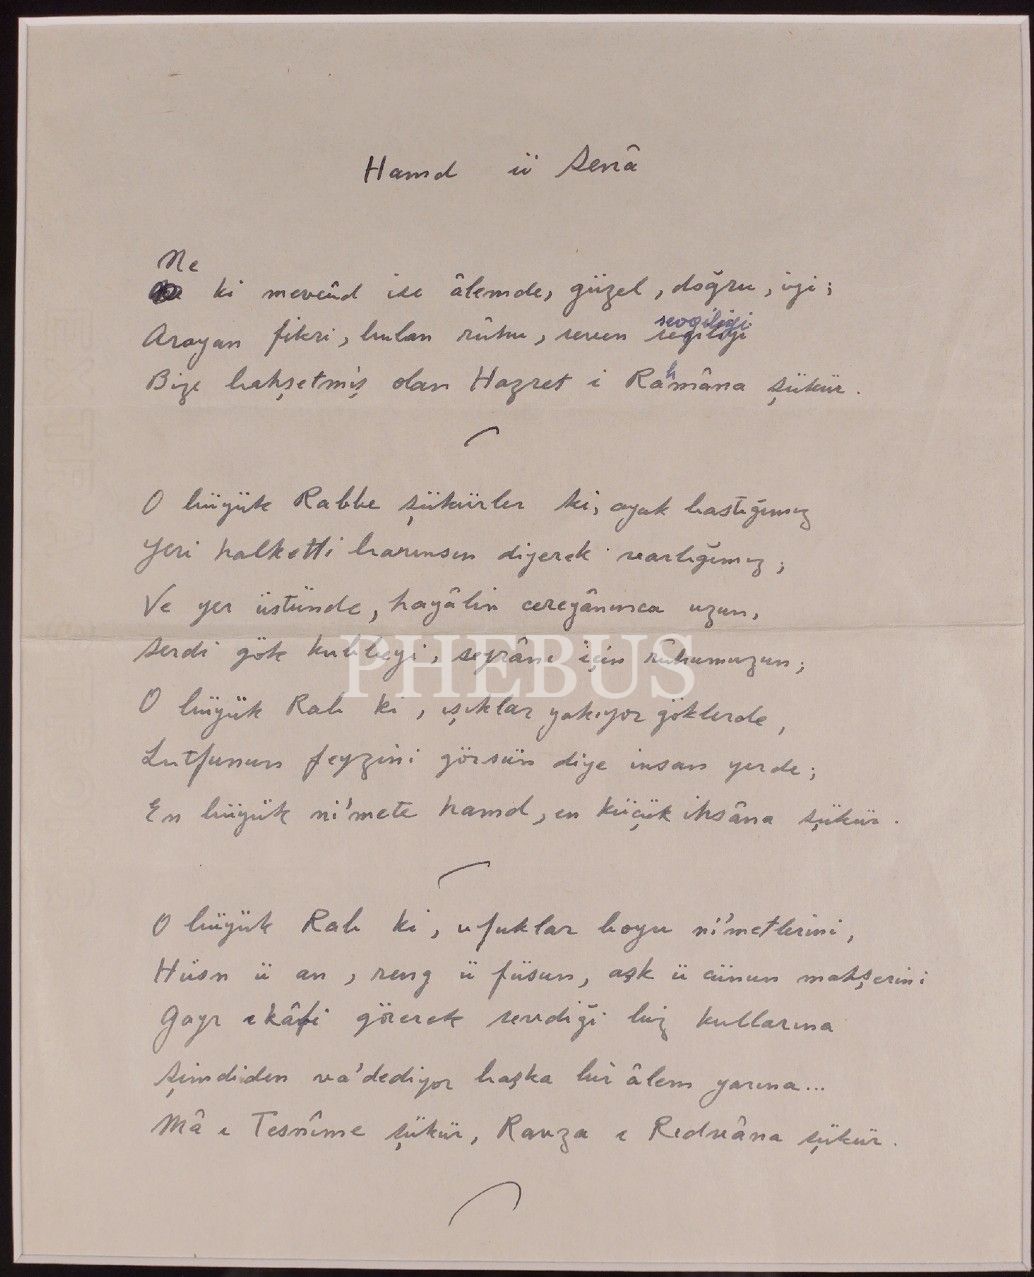 Hamd ü Senâ
Ne
ki mevcûd ise âlemde, güzel, doğru, iyi;
sevgiliyi
Arayan fikri, bulan rûhu, seven sevgiliyi
Bize bahşetmiş olan Hazret i Rahmâna şükür.
O büyük Rabbe şükürler ki, ayak bastığımız
Yeri halketti barınsın diyerek varlığımız;
Ve yer üstünde, hayâlin cereyânınca uzun,
Serdi gök kubbeyi, seyrânı için rûhumuzun;
PHEBUS
O büyük Rab ki, ışıklar yakıyor göklerde,
Lutfunun feyzini görsün diye insan yerde;
En büyük ni'mete hamd, en küçük ihsâna şükür.
O büyük Rab ki, ufuklar boyu ni'metlerini,
Hüsn ü an, reng ü füsun, aşk ü cünun mahşerini
Gayr ı kâfi görerek sevdiği biz kullarına
Şimdiden va'dediyor başka bir âlem yarına...
Mâ ı Tesnîme şükür, Ravza ı Rıdvâna şükür.